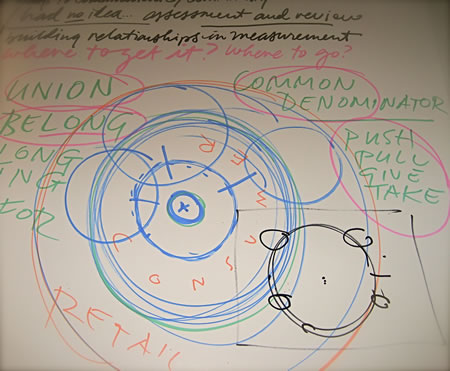 I had no idea... assessment and review
building relationships in measurement
where to get it? Where to go?
UNION
BELONG
LONG
ING
FOR
COMMON
DENOMINATOR
PUSH
PULL
GIVE
TAKE
CONSUMER
RETAIL